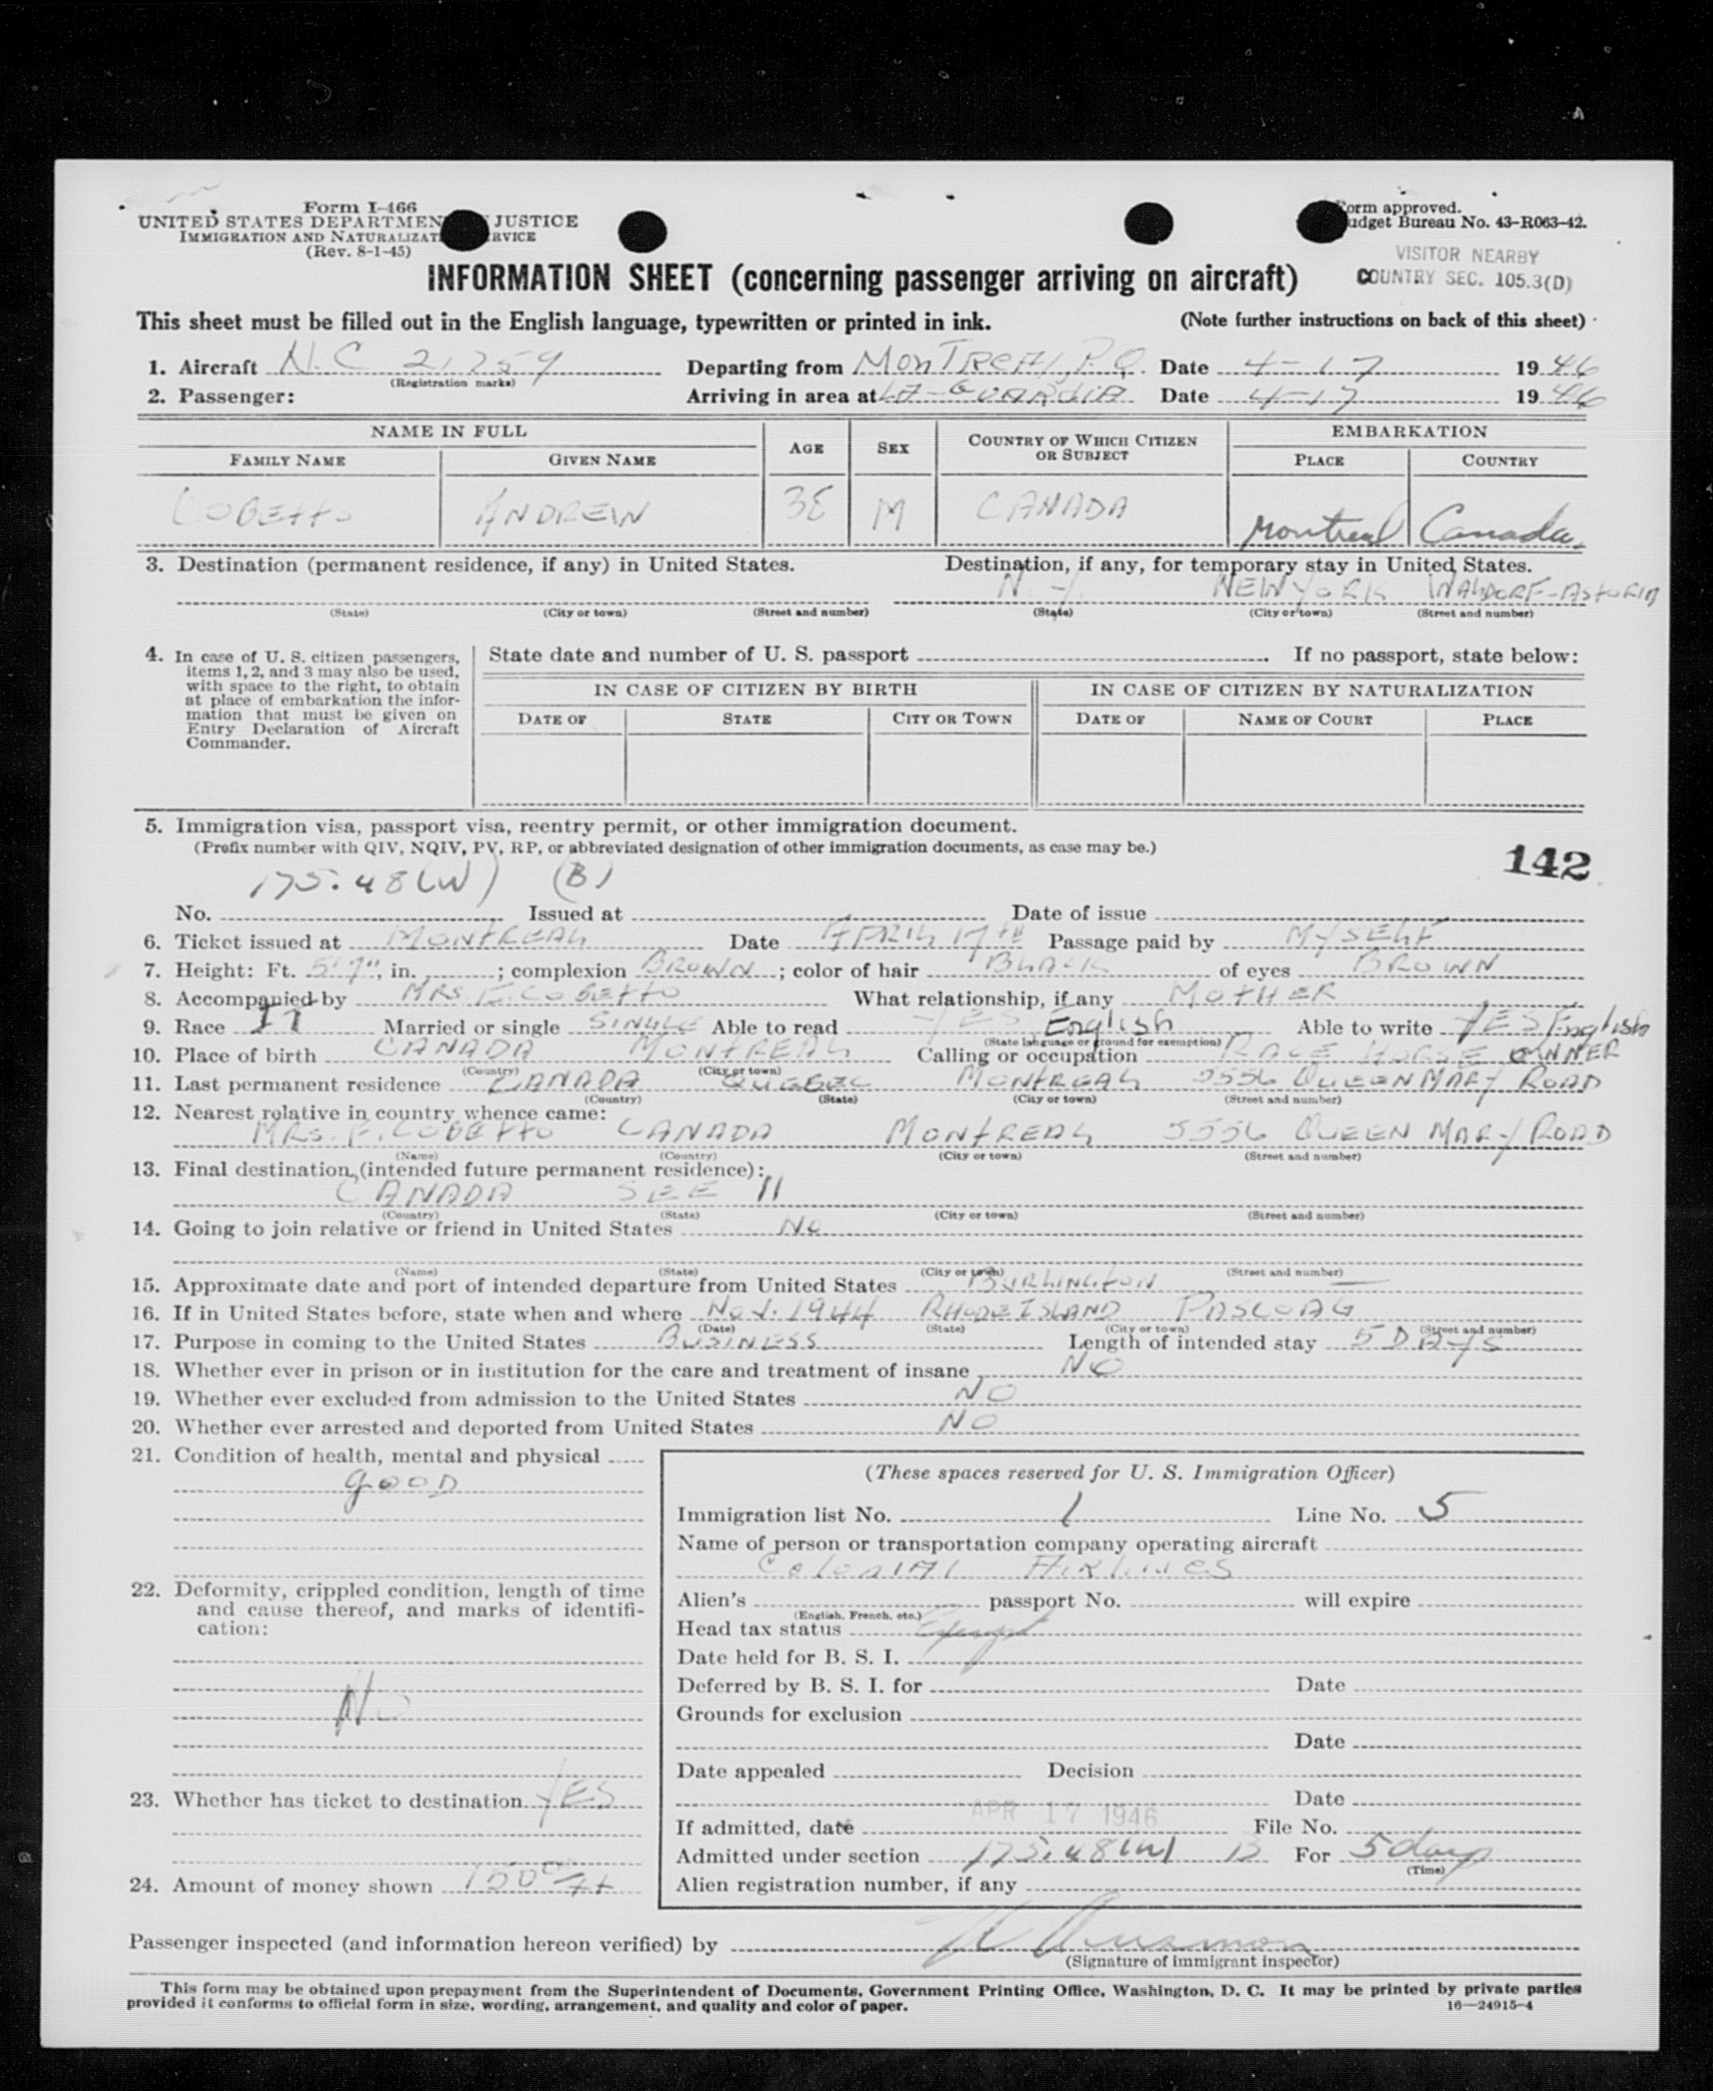 Form I-466
UNITED STATES DEPARTMENT JUSTICE
IMMIGRATION AND NATURALIZAT RVICE
(Rev. 8-1-45)
Form approved.
Budget Bureau No. 43-R063-42.
VISITOR NEARBY
COUNTRY SEC. 105.3(D)
INFORMATION SHEET (concerning passenger arriving on aircraft)
This sheet must be filled out in the English language, typewritten or printed in ink. (Note further instructions on back of this sheet)
1. Aircraft N.C 21759 Departing from MONTREAL, P.Q. Date 4-17 1946
(Registration marks)
2. Passenger: Arriving in area at LA-GUARDIA Date 4-17 1946
NAME IN FULL AGE SEX COUNTRY OF WHICH CITIZEN OR SUBJECT EMBARKATION
FAMILY NAME GIVEN NAME PLACE COUNTRY
COBETTO ANDREW M CANADA Montreal Canada
3. Destination (permanent residence, if any) in United States. Destination, if any, for temporary stay in United States.
N.Y. NEW YORK WALDORF-ASTORIA
(State) (City or town) (Street and number) (State) (City or town) (Street and number)
4. In case of U. S. citizen passengers, items 1, 2, and 3 may also be used, with space to the right, to obtain at place of embarkation the information that must be given on Entry Declaration of Aircraft Commander.
State date and number of U. S. passport . If no passport, state below:
IN CASE OF CITIZEN BY BIRTH IN CASE OF CITIZEN BY NATURALIZATION
DATE OF STATE CITY OR TOWN DATE OF NAME OF COURT PLACE
5. Immigration visa, passport visa, reentry permit, or other immigration document.
(Prefix number with QIV, NQIV, PV, RP, or abbreviated designation of other immigration documents, as case may be.)
142
175.48(W) (B)
No. Issued at Date of issue
6. Ticket issued at MONTREAL Date APRIL 17TH Passage paid by MYSELF
7. Height: Ft. 5'7", in. ; complexion BROWN ; color of hair BLACK of eyes BROWN
8. Accompanied by MRS. E. COBETTO What relationship, if any MOTHER
9. Race IT Married or single SINGLE Able to read YES English Able to write YES English
(State language or ground for exemption)
10. Place of birth CANADA MONTREAL Calling or occupation RACE HORSE OWNER
(Country) (City or town)
11. Last permanent residence CANADA QUEBEC MONTREAL 5556 QUEEN MARY ROAD
(Country) (State) (City or town) (Street and number)
12. Nearest relative in country whence came:
MRS. E. COBETTO CANADA MONTREAL 5556 QUEEN MARY ROAD
(Name) (Country) (City or town) (Street and number)
13. Final destination (intended future permanent residence):
CANADA SEE 11
(Country) (State) (City or town) (Street and number)
14. Going to join relative or friend in United States NO
(Name) (State) (City or town) (Street and number)
15. Approximate date and port of intended departure from United States BURLINGTON
16. If in United States before, state when and where NOV. 1944 RHODE ISLAND PASCOAG
(Date) (State) (City or town) (Street and number)
17. Purpose in coming to the United States BUSINESS Length of intended stay 5 DAYS
18. Whether ever in prison or in institution for the care and treatment of insane NO
19. Whether ever excluded from admission to the United States NO
20. Whether ever arrested and deported from United States NO
21. Condition of health, mental and physical
GOOD
22. Deformity, crippled condition, length of time and cause thereof, and marks of identification:
NO
23. Whether has ticket to destination YES
24. Amount of money shown
(These spaces reserved for U. S. Immigration Officer)
Immigration list No. 1 Line No. 5
Name of person or transportation company operating aircraft
Colonial Airlines
Alien's passport No. will expire
(English, French, etc.)
Head tax status Exempt
Date held for B. S. I.
Deferred by B. S. I. for Date
Grounds for exclusion
Date
Date appealed Decision
Date
If admitted, date APR 17 1946 File No.
Admitted under section 175.48(W) B For 5 days
(Time)
Alien registration number, if any
Passenger inspected (and information hereon verified) by
(Signature of immigrant inspector)
This form may be obtained upon prepayment from the Superintendent of Documents, Government Printing Office, Washington, D. C. It may be printed by private parties
provided it conforms to official form in size, wording, arrangement, and quality and color of paper. 16—24915-4